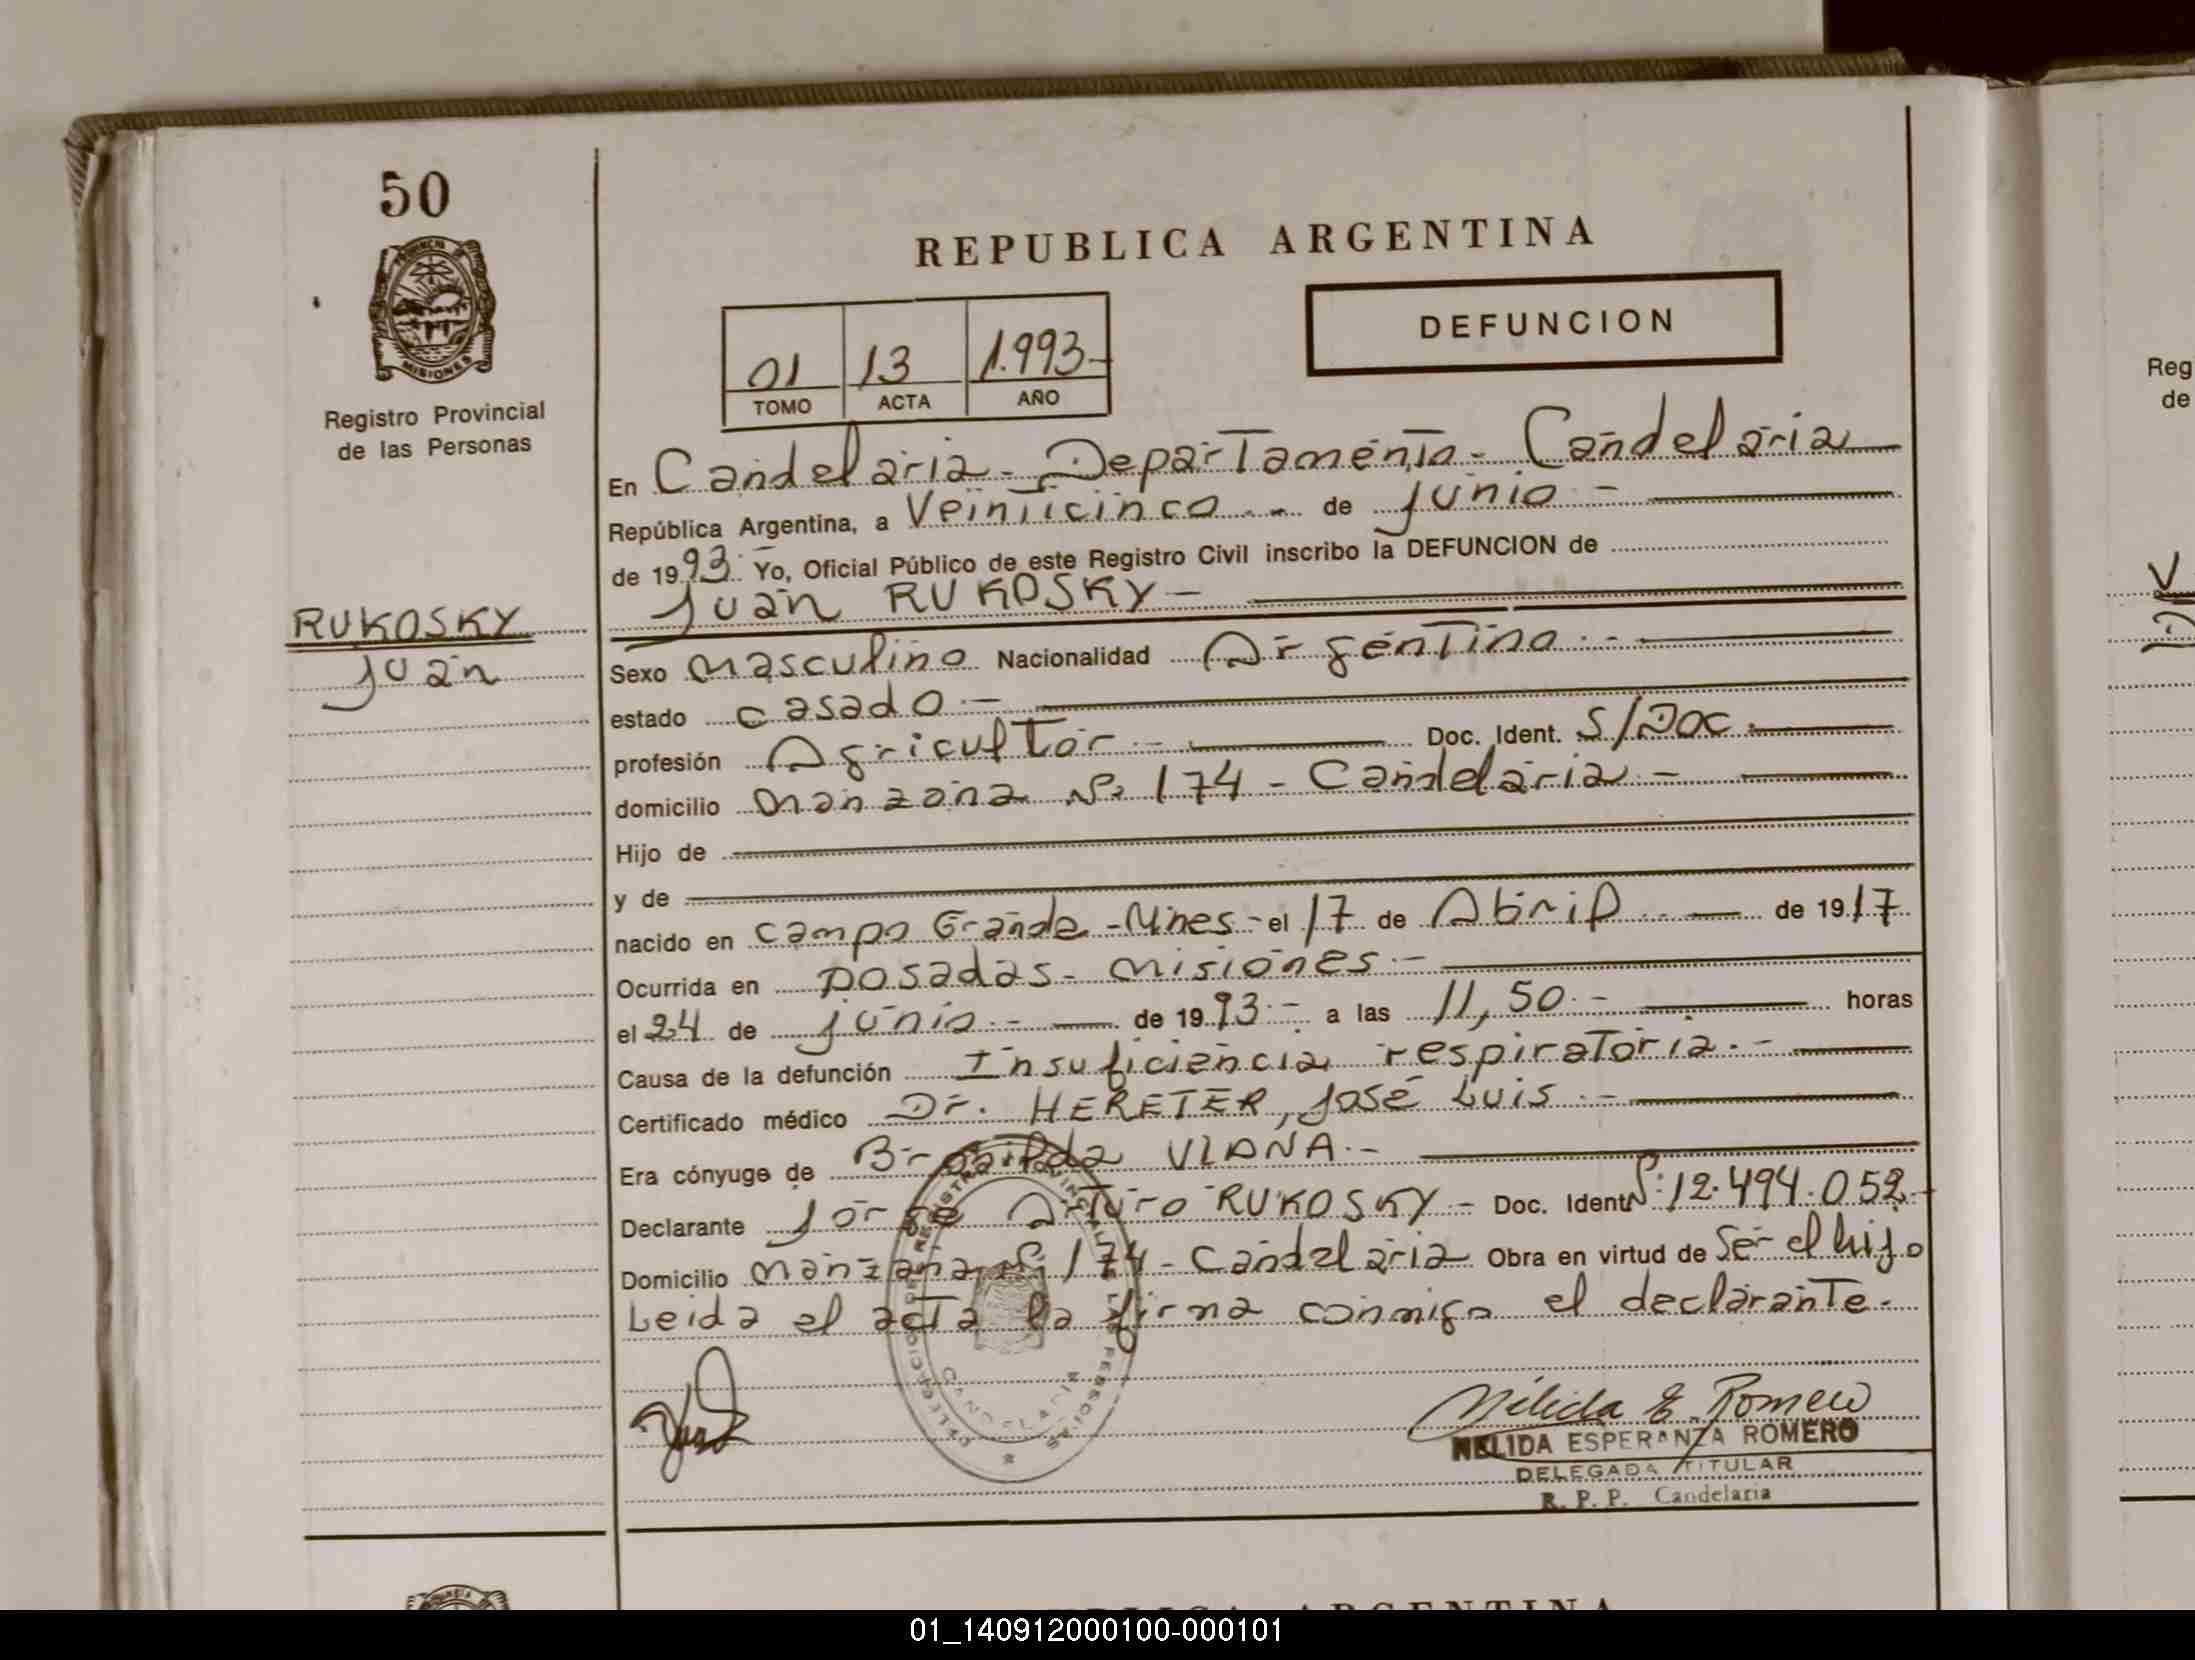 50
PROVINCIA DE
MISIONES
Registro Provincial
de las Personas
RUKOSKY
Juan
REPUBLICA ARGENTINA
DEFUNCION
01 13 1.993-
TOMO ACTA AÑO
En Candelaria - Departamento - Candelaria
República Argentina, a Veinticinco - - de junio -
de 1993. Yo, Oficial Público de este Registro Civil inscribo la DEFUNCION de
Juan RUKOSKY -
Sexo masculino Nacionalidad Argentino. -
estado casado. -
profesión Agricultor. - Doc. Ident. S/Doc.
domicilio manzana Nº 174 - Candelaria -
Hijo de
y de
nacido en Campo Grande - Mnes - el 17 de Abril - de 1917
Ocurrida en posadas - misiones. -
el 24 de junio. - de 1993. - a las 11,50. - horas
Causa de la defunción Insuficiencia respiratoria. -
Certificado médico Dr. HERETER, José Luis. -
Era cónyuge de VIANA. -
Declarante Jorge Arturo RUKOSKY - Doc. Ident Nº 12.494.052-
Domicilio manzana Nº 174 - Candelaria Obra en virtud de Ser el hijo
Leida el acta la firma conmigo el declarante.
DELEGACION DE REGISTRO PROVINCIAL DE LAS PERSONAS
CANDELARIA
Nélida E. Romero
NELIDA ESPERANZA ROMERO
DELEGADA TITULAR
R. P. P. Candelaria
Reg
de
V
D
REPUBLICA ARGENTINA
01_140912000100-000101